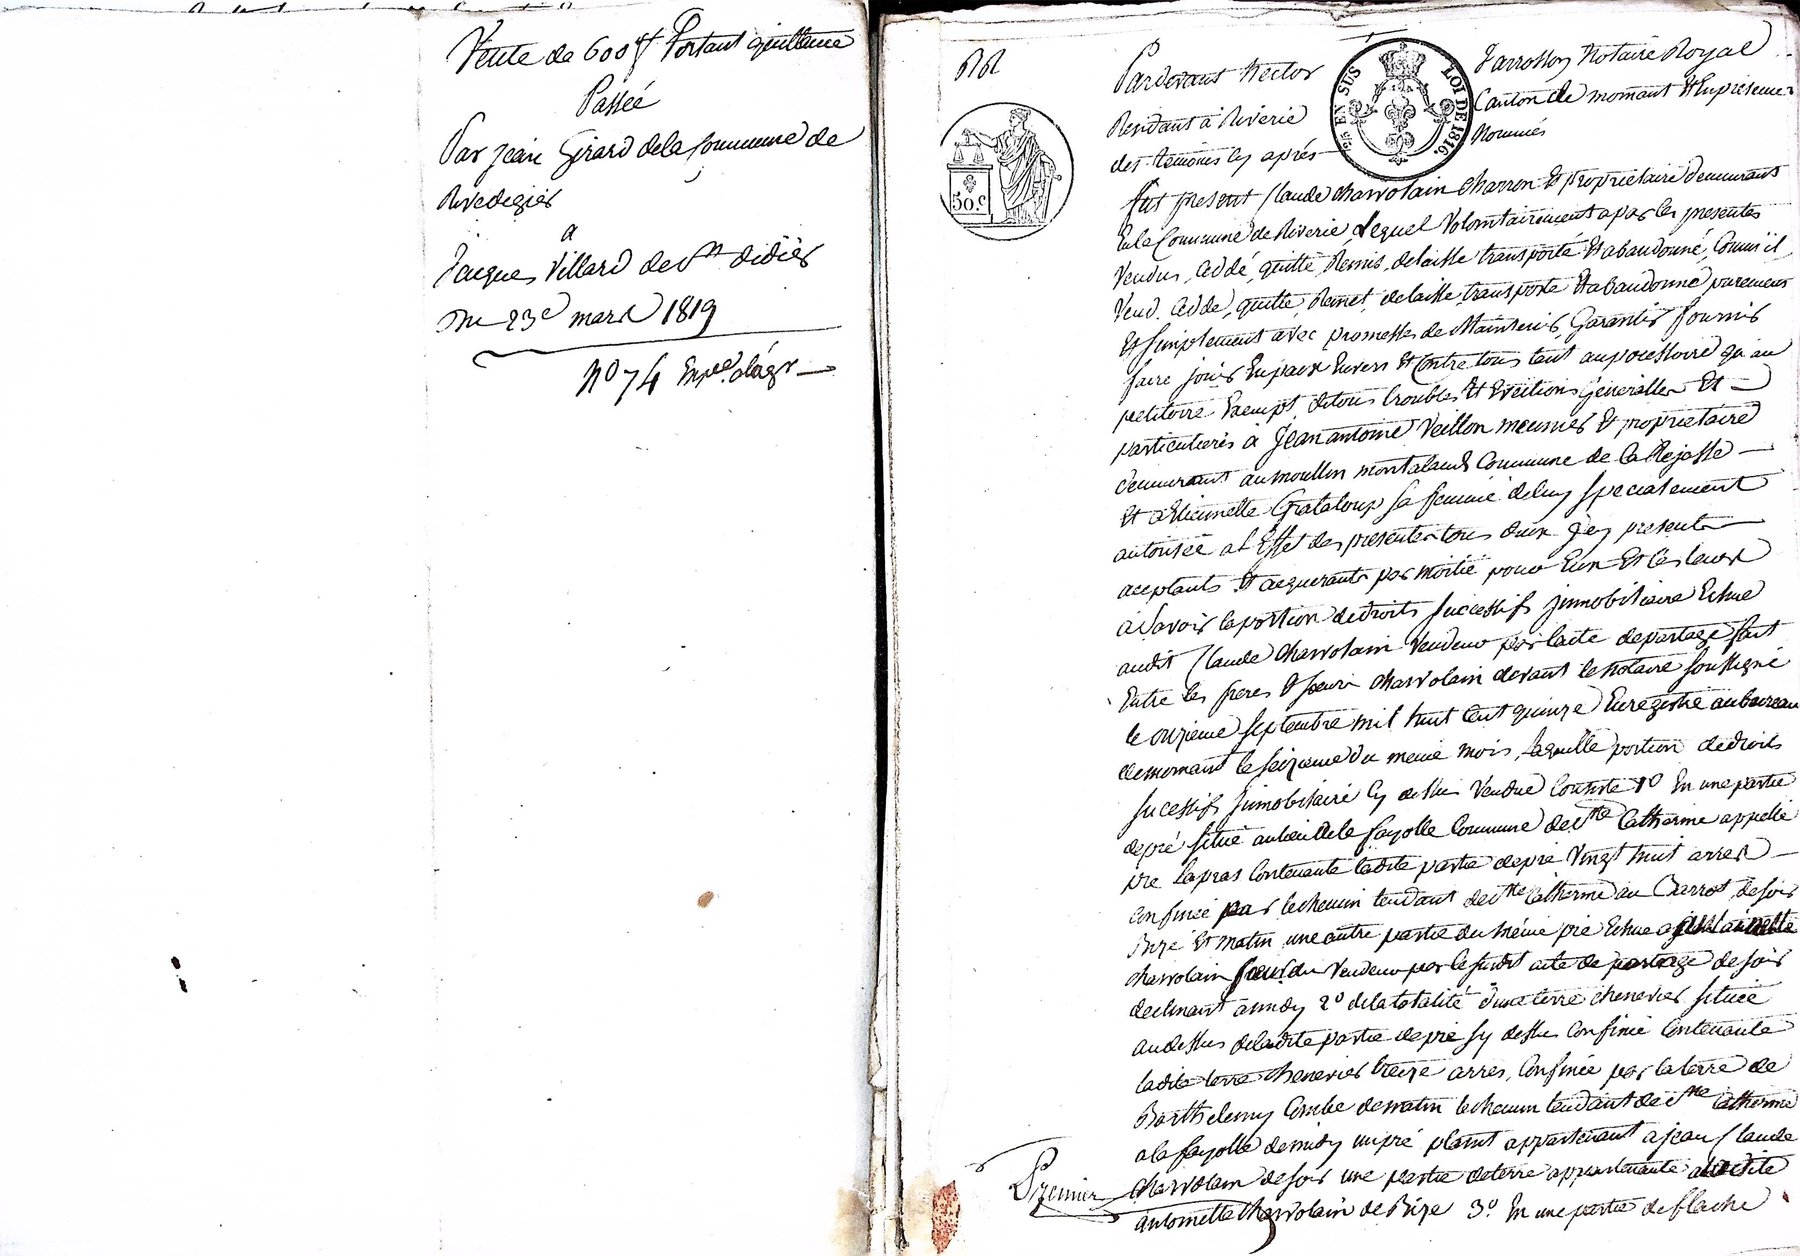 Vente de 600 f Portant quittance
Passée
Par Jean Girard de la Commune de
Rivedegier
a
Jacques Villard de St didier
Du 23e mars 1819
No 74
Pardevant hector
Residant à Riverie
des temoins cy aprés
50 C
EN SUS
LOI DE 1816.
Notaire Royal
Canton de mornant Et En presence
Nommés
fut present Claude Charvolain Charron Et proprietaire demeurant
En la Commune de Riverie, Lequel Volontairement a par les presentes
Vendu, Ceddé, quitté, Remis, delaisse transporté Et abandonné, Comm'il
Vend, Cedde, quitte, Remet, delaisse, transporte Et abandonne purement
Et Simplement avec promesse de Maintenir Garantir fournir
faire jouir En paix Envers Et Contre tous tant au possessoire qu'au
petitoire Exempt de tous troubles Et Evictions Generalles Et
particulieres à Jean antoine Veillon meunier Et proprietaire
demeurant au moullin montaland Commune de La Rejasse
Et a Etiennette Grataloup sa femme de luy specialement
autorisée a l'Effet des presentes tous deux Jcy present
aceptants Et acquerants par moitié pour Eux Et les leurs
à Savoir la portion de droits Successifs jmmobiliaire Echue
audit Claude Charvolain Vendeur par l'acte de partage fait
Entre les freres Et soeurs Charvolain devant le Notaire Soussigné
le onzieme Septembre mil huit Cent quinze Enregistré au bureau
de mornant le Seizieme du meme mois, Laquelle portion de droits
Sucessifs Jmmobiliaire Cy dessus Vendue Consiste 1o En une partie
de pré Situé au lieu de la fayolle Commune de Ste Catherine appellé
pré Lapras Contenante ladite partie de pré Vingt huit arres
Confinée par le chemin tendant de Ste Catherine au Barrot de Soir
Bize Et matin une autre partie du même pré Echue a
Charvolain soeur du Vendeur par le Susdit acte de partage de soir
declinant a midy 2o de la totalité d'une terre chenevier située
au dessus de ladite partie de pré Cy dessus Confinée Contenante
ladite terre chenevier treize arres, Confinée par la terre de
Barthelemy Combe de matin le chemin tendant de Ste Catherine
a la fayolle de midy un pré appartenant a jean Claude
Charvolain de soir une partie de terre appartenante a ladite
Premier
antoinette Charvolain de Bize 3o En une partie de flache